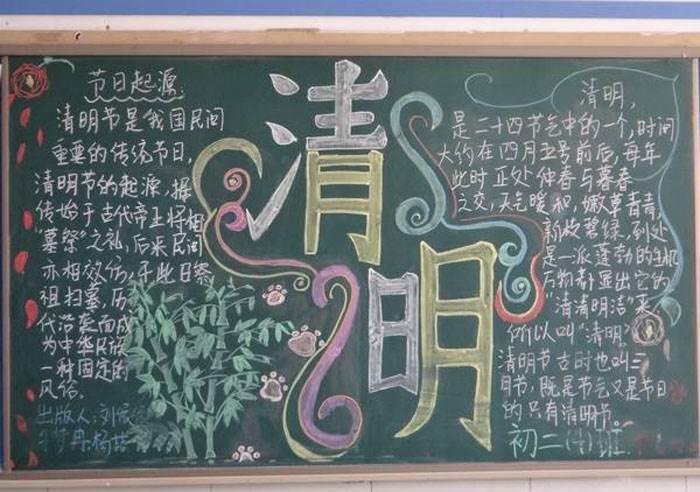 节日起源:
清明节是我国民间
重要的传统节日,
清明节的起源,据
传始于古代帝王将相
"墓祭"之礼,后来民间
亦相效仿,于此日祭
祖扫墓,历
代沿袭而成
为中华民族
一种固定的
风俗.
出版人:刘
清
明
清明,
是二十四节气中的一个,时间
大约在四月五号前后,每年
此时正处仲春与暮春
之交,天气暖和,嫩草青青,
新枝碧绿,到处
是一派蓬勃的生机
万物都显出它的
"清清明洁"来
所以叫"清明".
清明节古时也叫三
月节,既是节气又是节日
的只有清明节。
初二(4)班